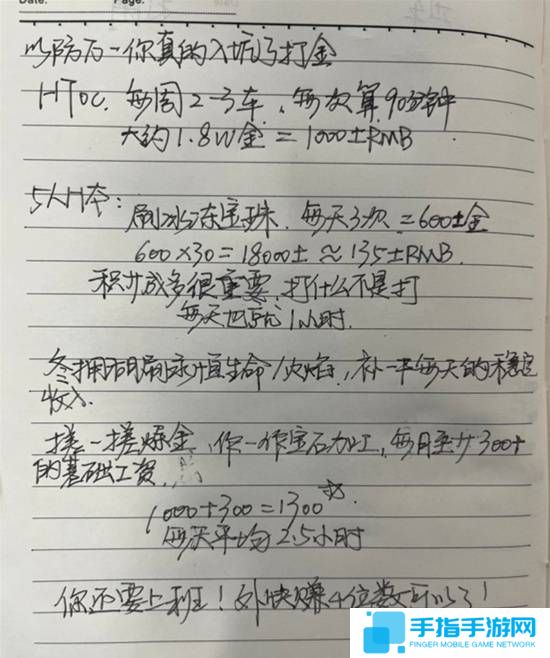 Date:
Page:
以防万一你真的入坑了打金
HTOC. 每周2-3车, 每次算90分钟
大约1.8W金=1000±RMB
5人H本:
刷冰冻宝珠. 每天3次=600±金
600×30=18000±≈135±RMB.
积少成多很重要, 打什么不是打
每天也就1小时.
冬拥湖刷永恒生命/火焰, 补一下每天的稳定
收入.
搓一搓炼金, 你一作宝石加工, 每月至少300+
的基础工资.
1000+300=1300
每天平均2.5小时
你还要上班!外快赚4位数可以了!
手指手游网
FINGER MOBILE GAME NETWORK